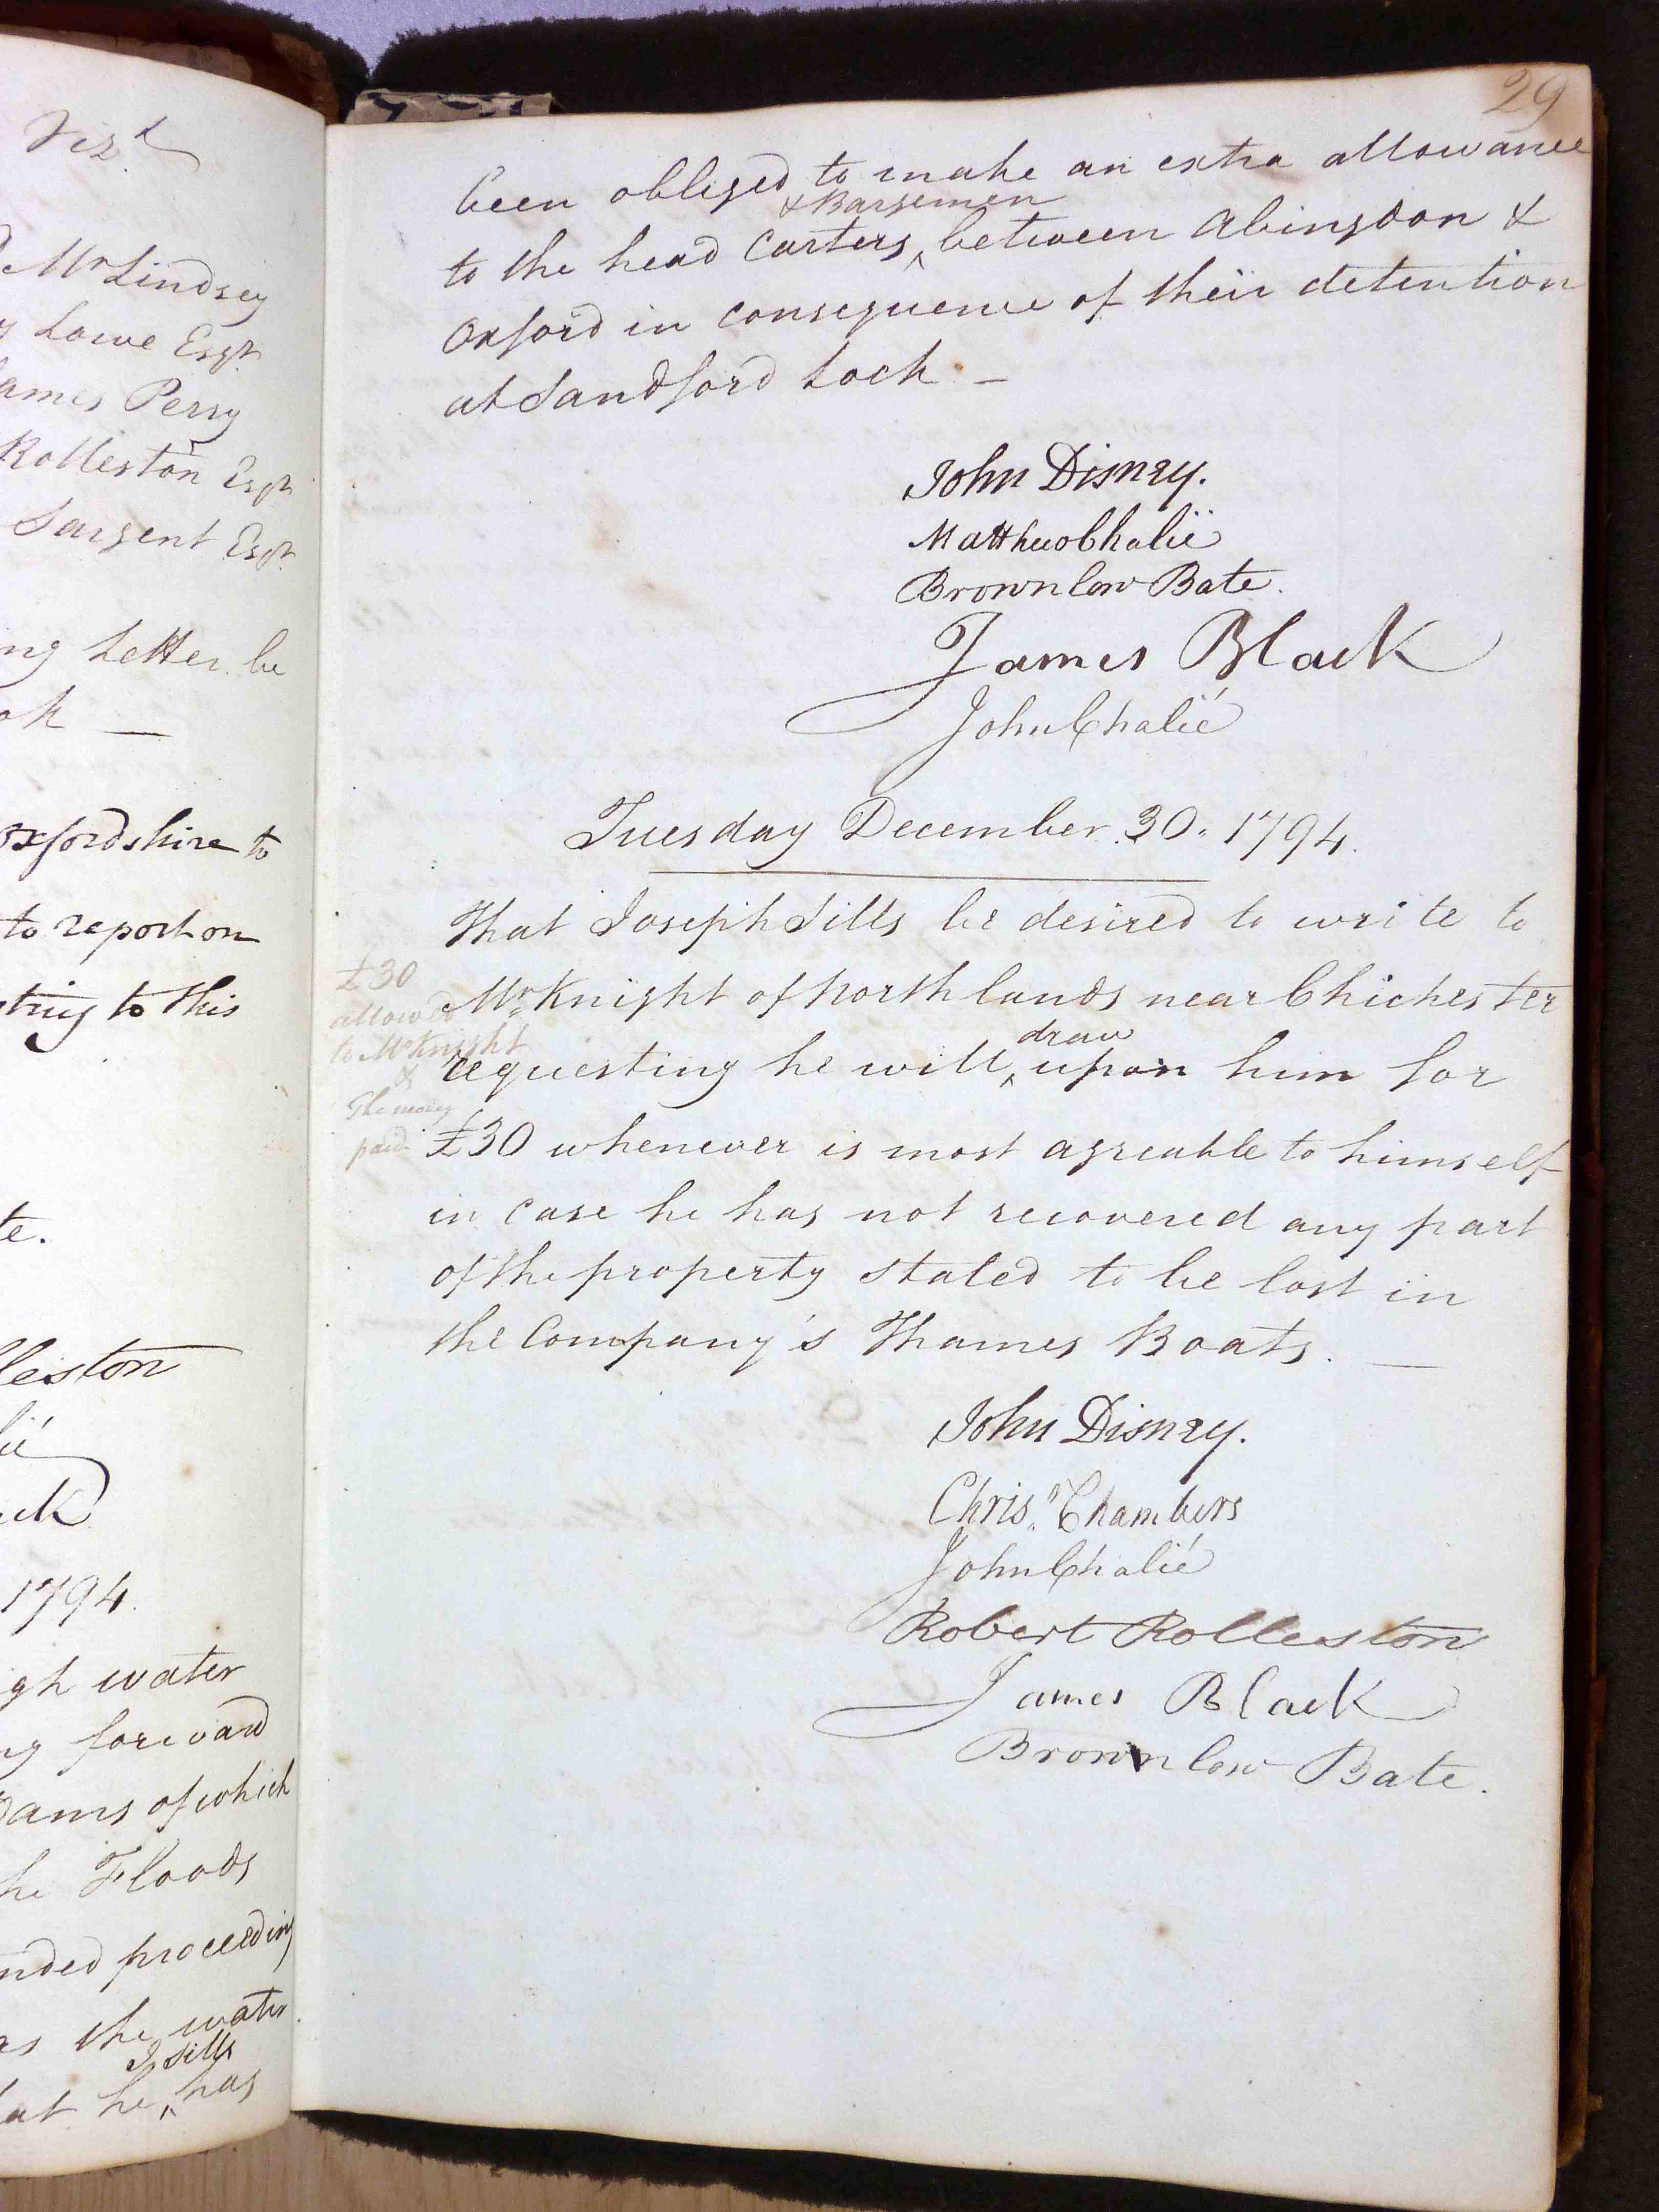 Vizt
Mr Lindsey
Lowe Esqr.
ames Perry
Rolleston Esqr
Sargent Esqr.
ng Letter be
ok —
oxfordshire to
to report on
ting to this
te.
lleston
lié
ck
1794.
gh water
ng forward
Dams of which
he Floods
nded proceeding
as the water
J Sills
at he ‸ has
29
been obliged to make an extra allowance
& Bargemen
to the head Carters ‸ between Abingdon &
Oxford in consequence of their detention
at Sandford Lock. —
John Disney.
Matthew Chalié
Brownlow Bate.
James Black
John Chalié
Tuesday December 30. 1794.
That Joseph Sills be desired to write to
Mr Knight of Northlands near Chichester
draw
requesting he will ‸ upon him for
£30 whenever is most agreable to himself
in case he has not recovered any part
of the property stated to be lost in
the Company's Thames Boats. —
£30
allowed
to Mr Knight
&
The money
paid
John Disney.
Chrisr. Chambers
John Chalié
Robert Rolleston
James Black
Brownlow Bate.